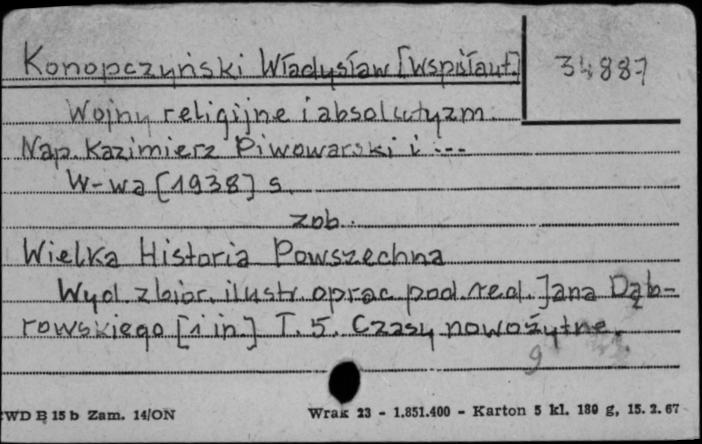 Konopczyński Władysław [współaut.] 34887
Wojny religijne i absolutyzm.
Nap. Kazimierz Piwowarski i ...
W-wa [1938] s.
zob.
Wielka Historia Powszechna
Wyd. zbior. ilustr. oprac. pod red. Jana Dąb-
rowskiego [i in.] T. 5. Czasy nowożytne.
WD B 15 b Zam. 14/ON Wrak 23 - 1.851.400 - Karton 5 kl. 180 g, 15. 2. 67